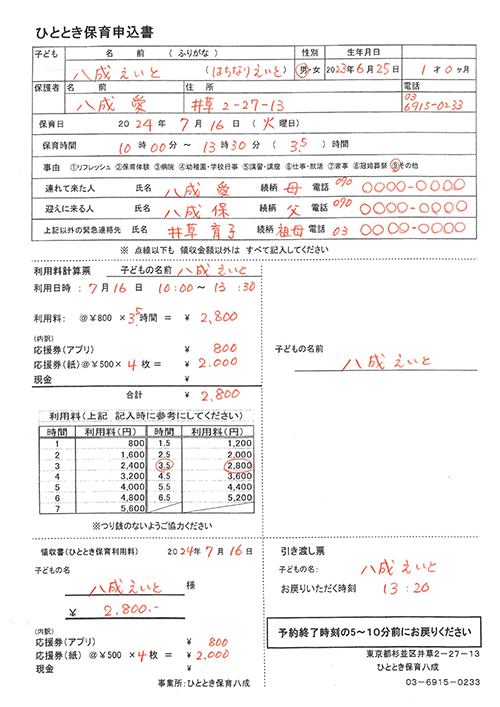 ひととき保育申込書
子ども 名 前 (ふりがな) 性別 生年月日
八成えいと (はちなりえいと) 男・女 2023年6月25日 1才0ヶ月
保護者 名 前 住 所 電話
八成 愛 井草2-27-13 03 6915-0233
保育日 2024年7月16日(火曜日)
保育時間 10時00分〜13時30分(3.5)時間
事由 ①リフレッシュ ②保育体験 ③病院 ④幼稚園・学校行事 ⑤講習・講座 ⑥仕事・就活 ⑦家事 ⑧冠婚葬祭 ⑨その他
連れて来た人 氏名 八成 愛 続柄 母 電話 090 0000-0000
迎えに来る人 氏名 八成 保 続柄 父 電話 090 0000-0000
上記以外の緊急連絡先 氏名 井草 育子 続柄 祖母 電話 03 0000-0000
※ 点線以下も 領収金額以外は すべて記入してください
利用料計算票 子どもの名前 八成えいと
利用日時:7月16日 10:00〜13:30
利用料: @¥800 ×3.5時間 = ¥ 2,800
(内訳)
応援券(アプリ) ¥ 800
応援券(紙)@¥500× 4枚= ¥ 2.000
現金 ¥
合計 ¥ 2,800
子どもの名前
八成えいと
利用料(上記 記入時に参考にしてください)
時間 利用料(円) 時間 利用料(円)
1 800 1.5 1,200
2 1,600 2.5 2,000
3 2,400 3.5 2,800
4 3,200 4.5 3,600
5 4,000 5.5 4,400
6 4,800 6.5 5,200
7 5,600
※つり銭のないようご協力ください
領収書(ひととき保育利用料) 2024年7月16日
子どもの名
八成えいと 様
¥ 2,800.-
(内訳)
応援券(アプリ) ¥ 800
応援券(紙) @¥500 ×4枚= ¥ 2,000
現金 ¥
事業所:ひととき保育八成
引き渡し票
子どもの名: 八成えいと
お戻りいただく時刻 13:20
予約終了時刻の5〜10分前にお戻りください
東京都杉並区井草2-27-13
ひととき保育八成
03-6915-0233